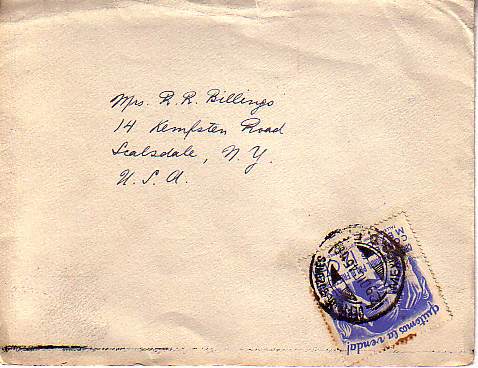 Mrs. R. R. Billings
14 Kempsten Road
Scalsdale, N. Y.
U. S. A.
¡quitemos la venda!